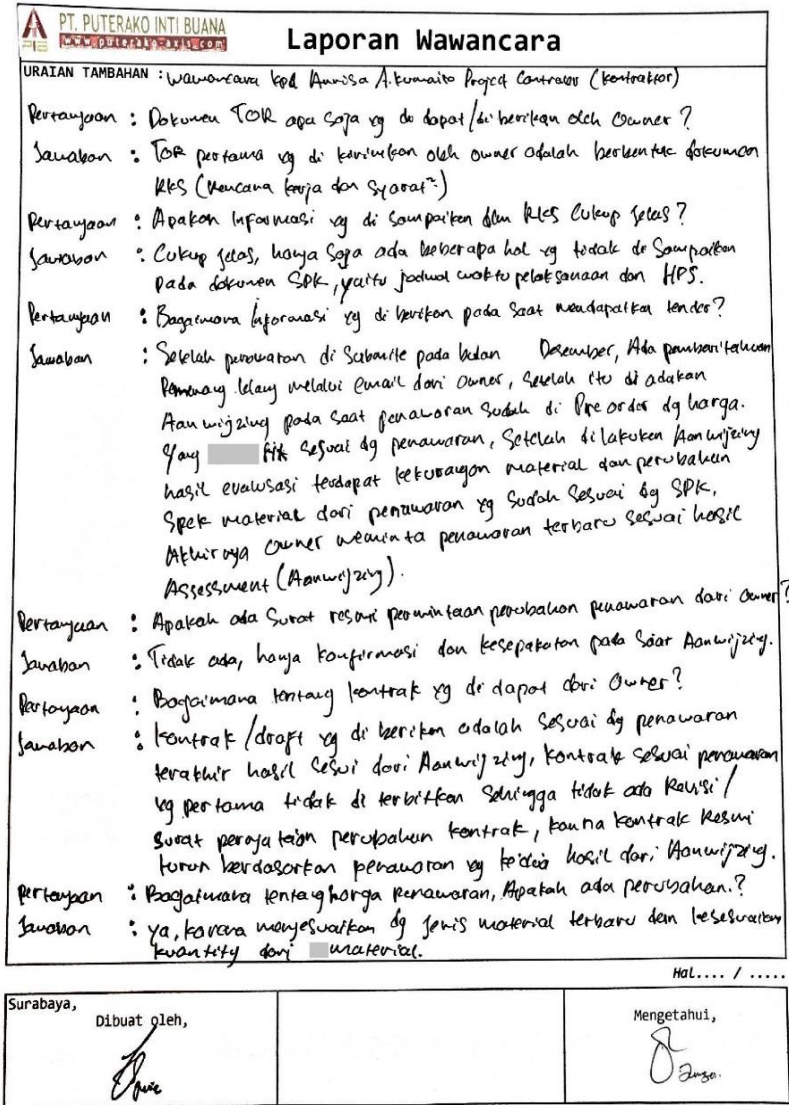 PT. PUTERAKO INTI BUANA
www.puterako-axis.com
PIB
Laporan Wawancara
URAIAN TAMBAHAN : Wawancara kpd Annisa A. Project Contractor (kontraktor)
Pertanyaan : Dokumen TOR apa saja yg di dapat/di berikan oleh Owner ?
Jawaban : TOR pertama yg di kirimkan oleh owner adalah berbentuk dokumen
RKS (Rencana kerja dan Syarat²)
Pertanyaan : Apakah Informasi yg di Sampaikan dlm RKS Cukup Jelas ?
Jawaban : Cukup Jelas, hanya Saja ada beberapa hal yg tidak di Sampaikan
pada dokumen SPK, yaitu jadwal waktu pelaksanaan dan HPS.
Pertanyaan : Bagaimana Informasi yg di berikan pada Saat mendapatkan tender ?
Jawaban : Setelah penawaran di Submite pada bulan Desember, Ada pemberitahuan
Pemenang lelang melalui email dari owner, setelah itu di adakan
Aanwijzing pada saat penawaran Sudah di Pre order dg harga.
Yang fix Sesuai dg penawaran, Setelah dilakukan Aanwijzing
hasil evaluasasi terdapat kekurangan material dan perubahan
Spek material dari penawaran yg Sudah Sesuai dg SPK,
Akhirnya owner meminta penawaran terbaru sesuai hasil
Assessment (Aanwijzing).
Pertanyaan : Apakah ada Surat resmi permintaan perubahan penawaran dari Owner ?
Jawaban : Tidak ada, hanya konfirmasi dan kesepakatan pada Saat Aanwijzing.
Pertanyaan : Bagaimana tentang kontrak yg di dapat dari Owner ?
Jawaban : Kontrak/draft yg di berikan adalah Sesuai dg penawaran
terakhir hasil Sesui dari Aanwijzing, Kontrak sesuai penawaran
yg pertama tidak di terbitkan Sehingga tidak ada Revisi/
Surat perubahan kontrak, karna kontrak Resmi
turun berdasarkan penawaran yg kedua hasil dari Aanwijzing.
Pertanyaan : Bagaimana tentang harga Penawaran, Apakah ada perubahan.?
Jawaban : Ya, karena menyesuaikan dg Jenis material terbaru dan kesesuaian
kuantity dari material.
Hal.... / .....
Surabaya,
Dibuat oleh,
Mengetahui,